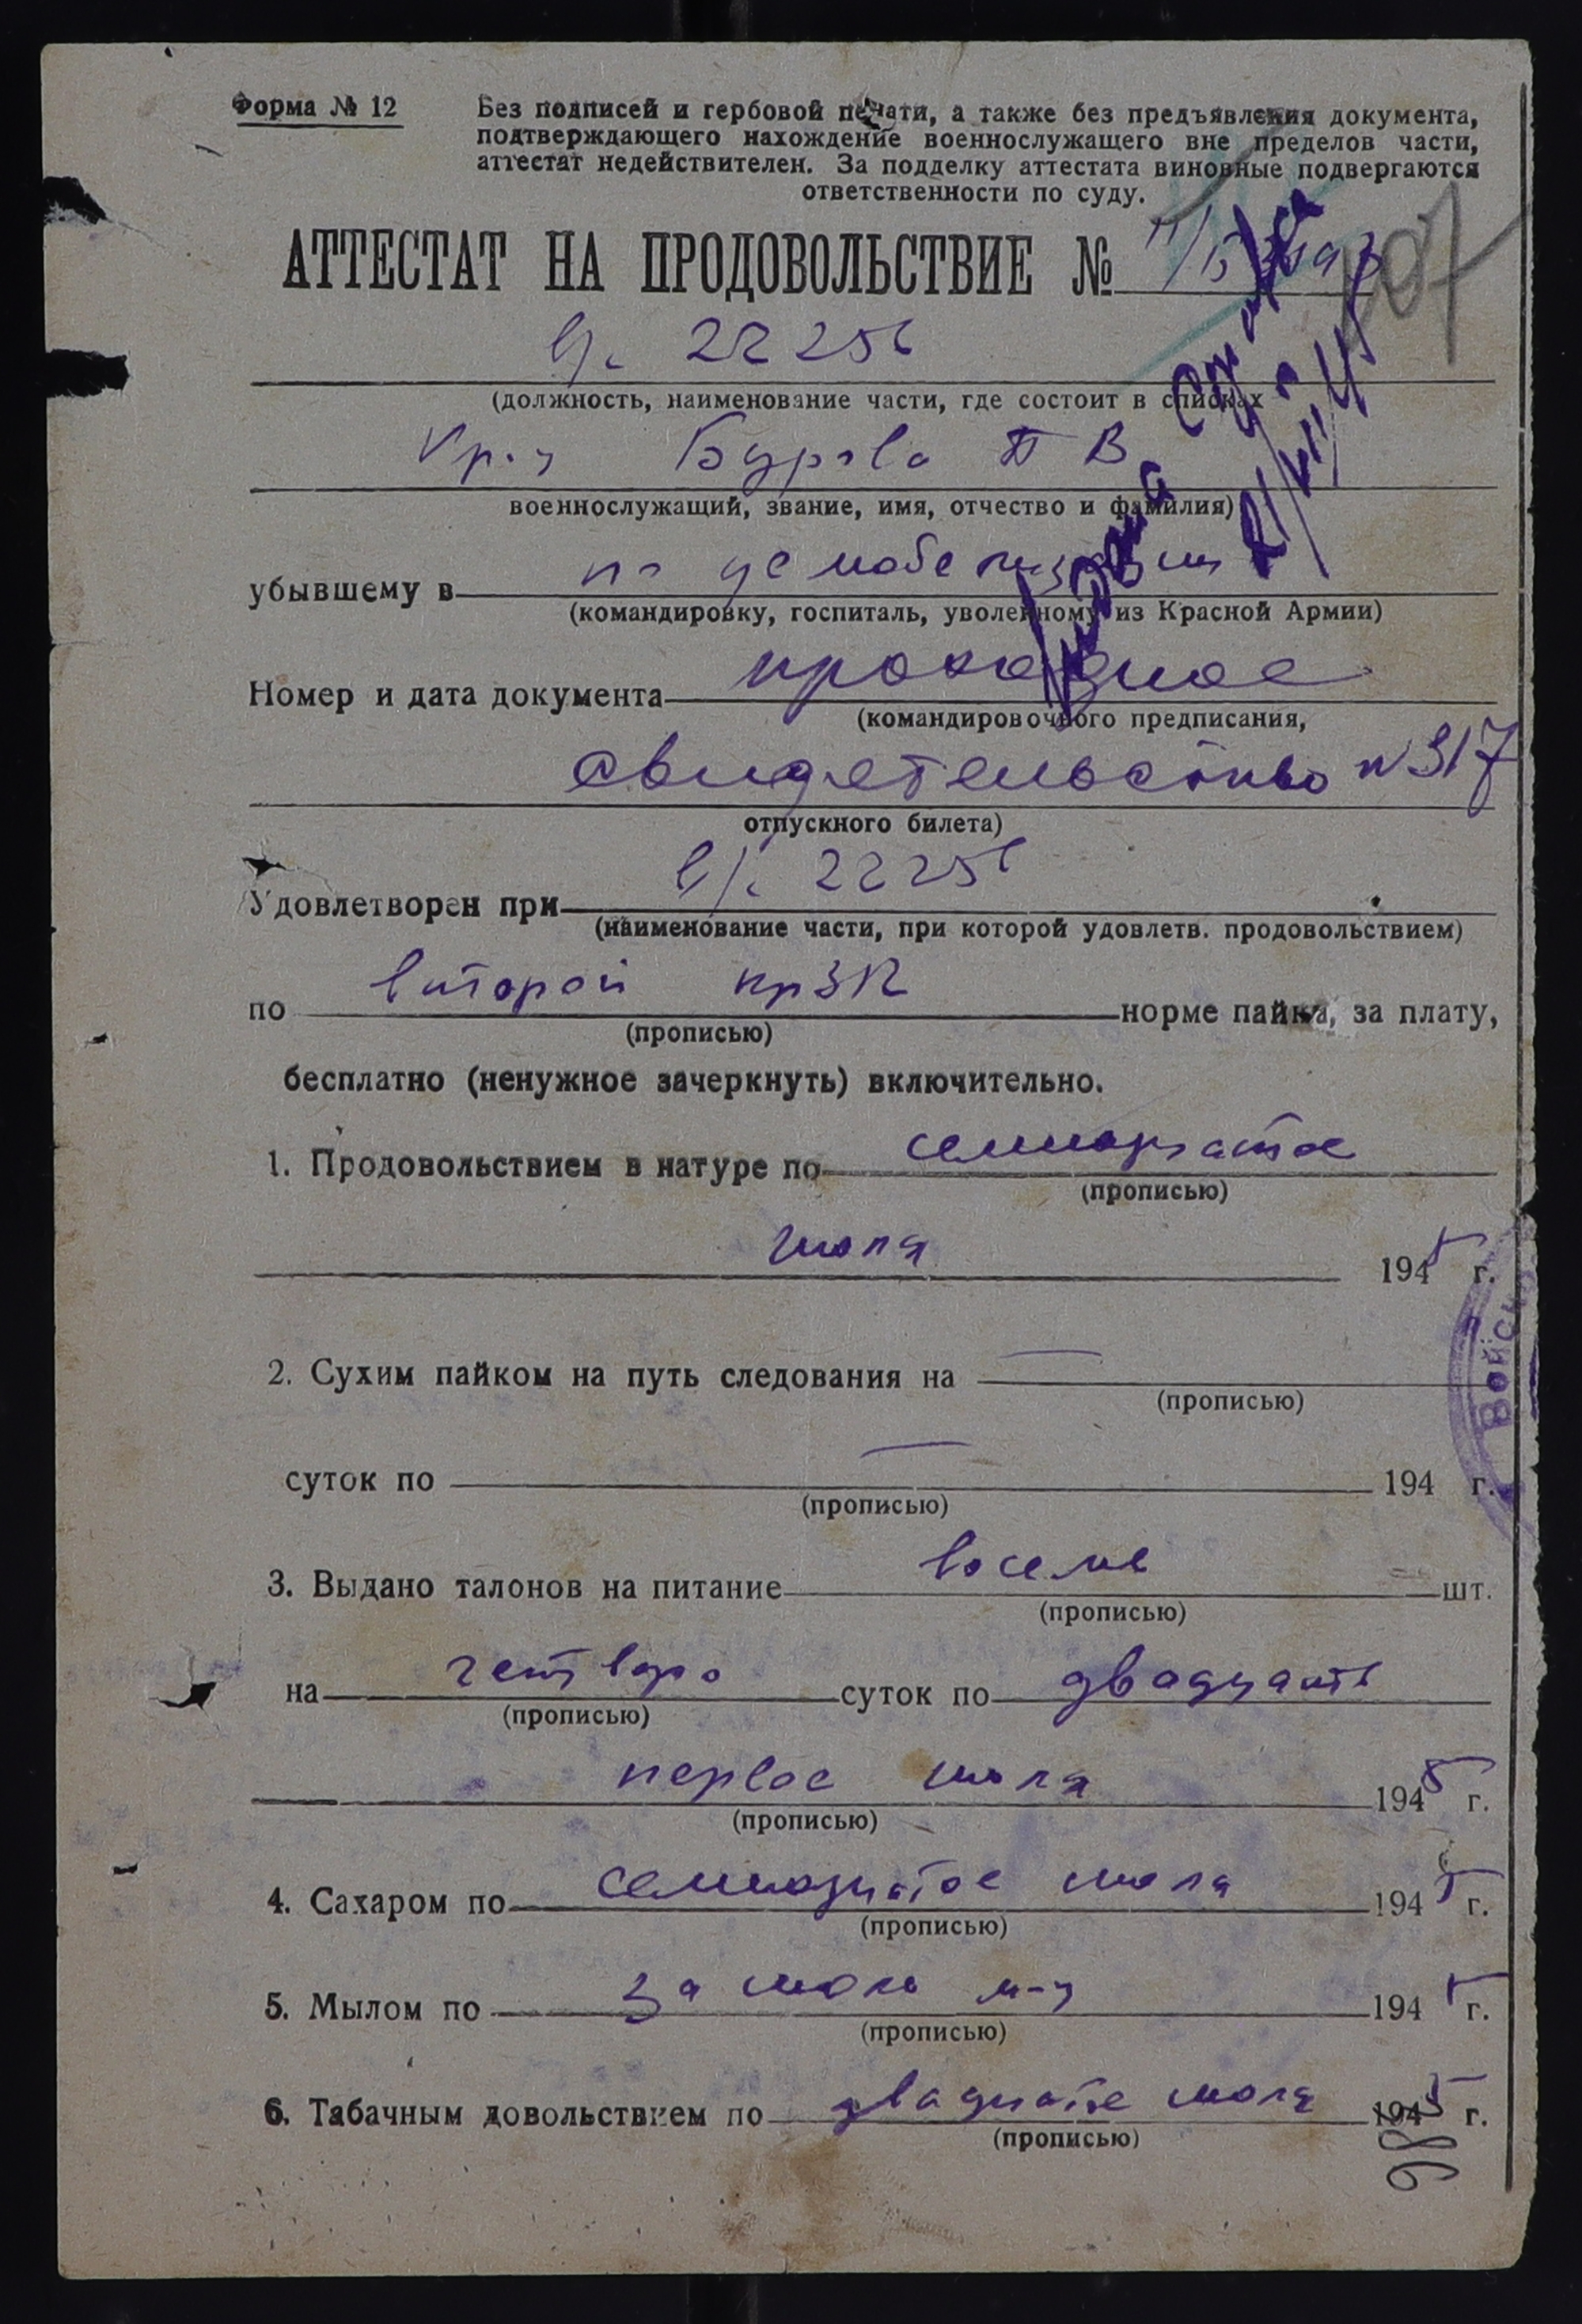 Форма № 12
Без подписей и гербовой печати, а также без предъявления документа,
подтверждающего нахождение военнослужащего вне пределов части,
аттестат недействителен. За подделку аттестата виновные подвергаются
ответственности по суду.
АТТЕСТАТ НА ПРОДОВОЛЬСТВИЕ №
107
в/ч 22256
(должность, наименование части, где состоит в списках
Кр-ц Бурова П В
военнослужащий, звание, имя, отчество и фамилия)
убывшему в по демобелизации
(командировку, госпиталь, уволенному из Красной Армии)
Номер и дата документа проходное
(командировочного предписания,
свидетельство № 317
отпускного билета)
Удовлетворен при в/ч 22256
(наименование части, при которой удовлетв. продовольствием)
по второй норме пайка, за плату,
(прописью)
бесплатно (ненужное зачеркнуть) включительно.
1. Продовольствием в натуре по семнадцатое
(прописью)
июля 1945 г.
2. Сухим пайком на путь следования на —
(прописью)
суток по — 194 г.
(прописью)
Войско
3. Выдано талонов на питание восемь шт.
(прописью)
на четверо суток по двадцать
(прописью)
первое июля 1945 г.
(прописью)
4. Сахаром по семнадцатое июля 1945 г.
(прописью)
5. Мылом по за июль м-ц 1945 г.
(прописью)
6. Табачным довольствием по двадцатое июля 1945 г.
(прописью)